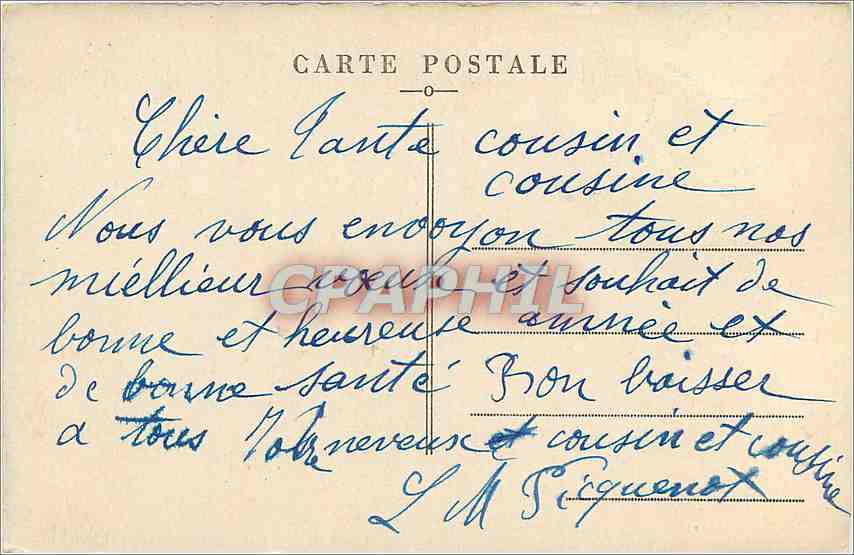 CARTE POSTALE
Chère Tante cousin et
cousine
Nous vous envoyon tous nos
miéllieur vœux et souhait de
bonne et heureuse année et
de bonne santé Bon baisser
a tous Votre neveux et cousin et cousine
L M Picquenot
CPAPHIL